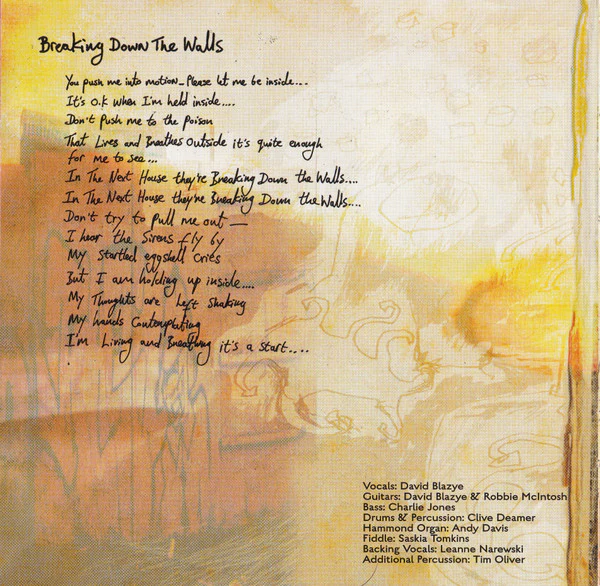 Breaking Down The Walls
You push me into motion - Please let me be inside....
It's O.K when I'm held inside....
Don't push me to the poison
That Lives and Breathes outside it's quite enough
for me to see...
In The Next House they're Breaking Down the Walls....
In The Next House they're Breaking Down the Walls....
Don't try to pull me out -
I hear the Sirens fly by
My startled eggshell cries
But I am holding up inside....
My Thoughts are left shaking
My hands Contemplating
I'm Living and Breathing it's a start....
Vocals: David Blazye
Guitars: David Blazye & Robbie McIntosh
Bass: Charlie Jones
Drums & Percussion: Clive Deamer
Hammond Organ: Andy Davis
Fiddle: Saskia Tomkins
Backing Vocals: Leanne Narewski
Additional Percussion: Tim Oliver